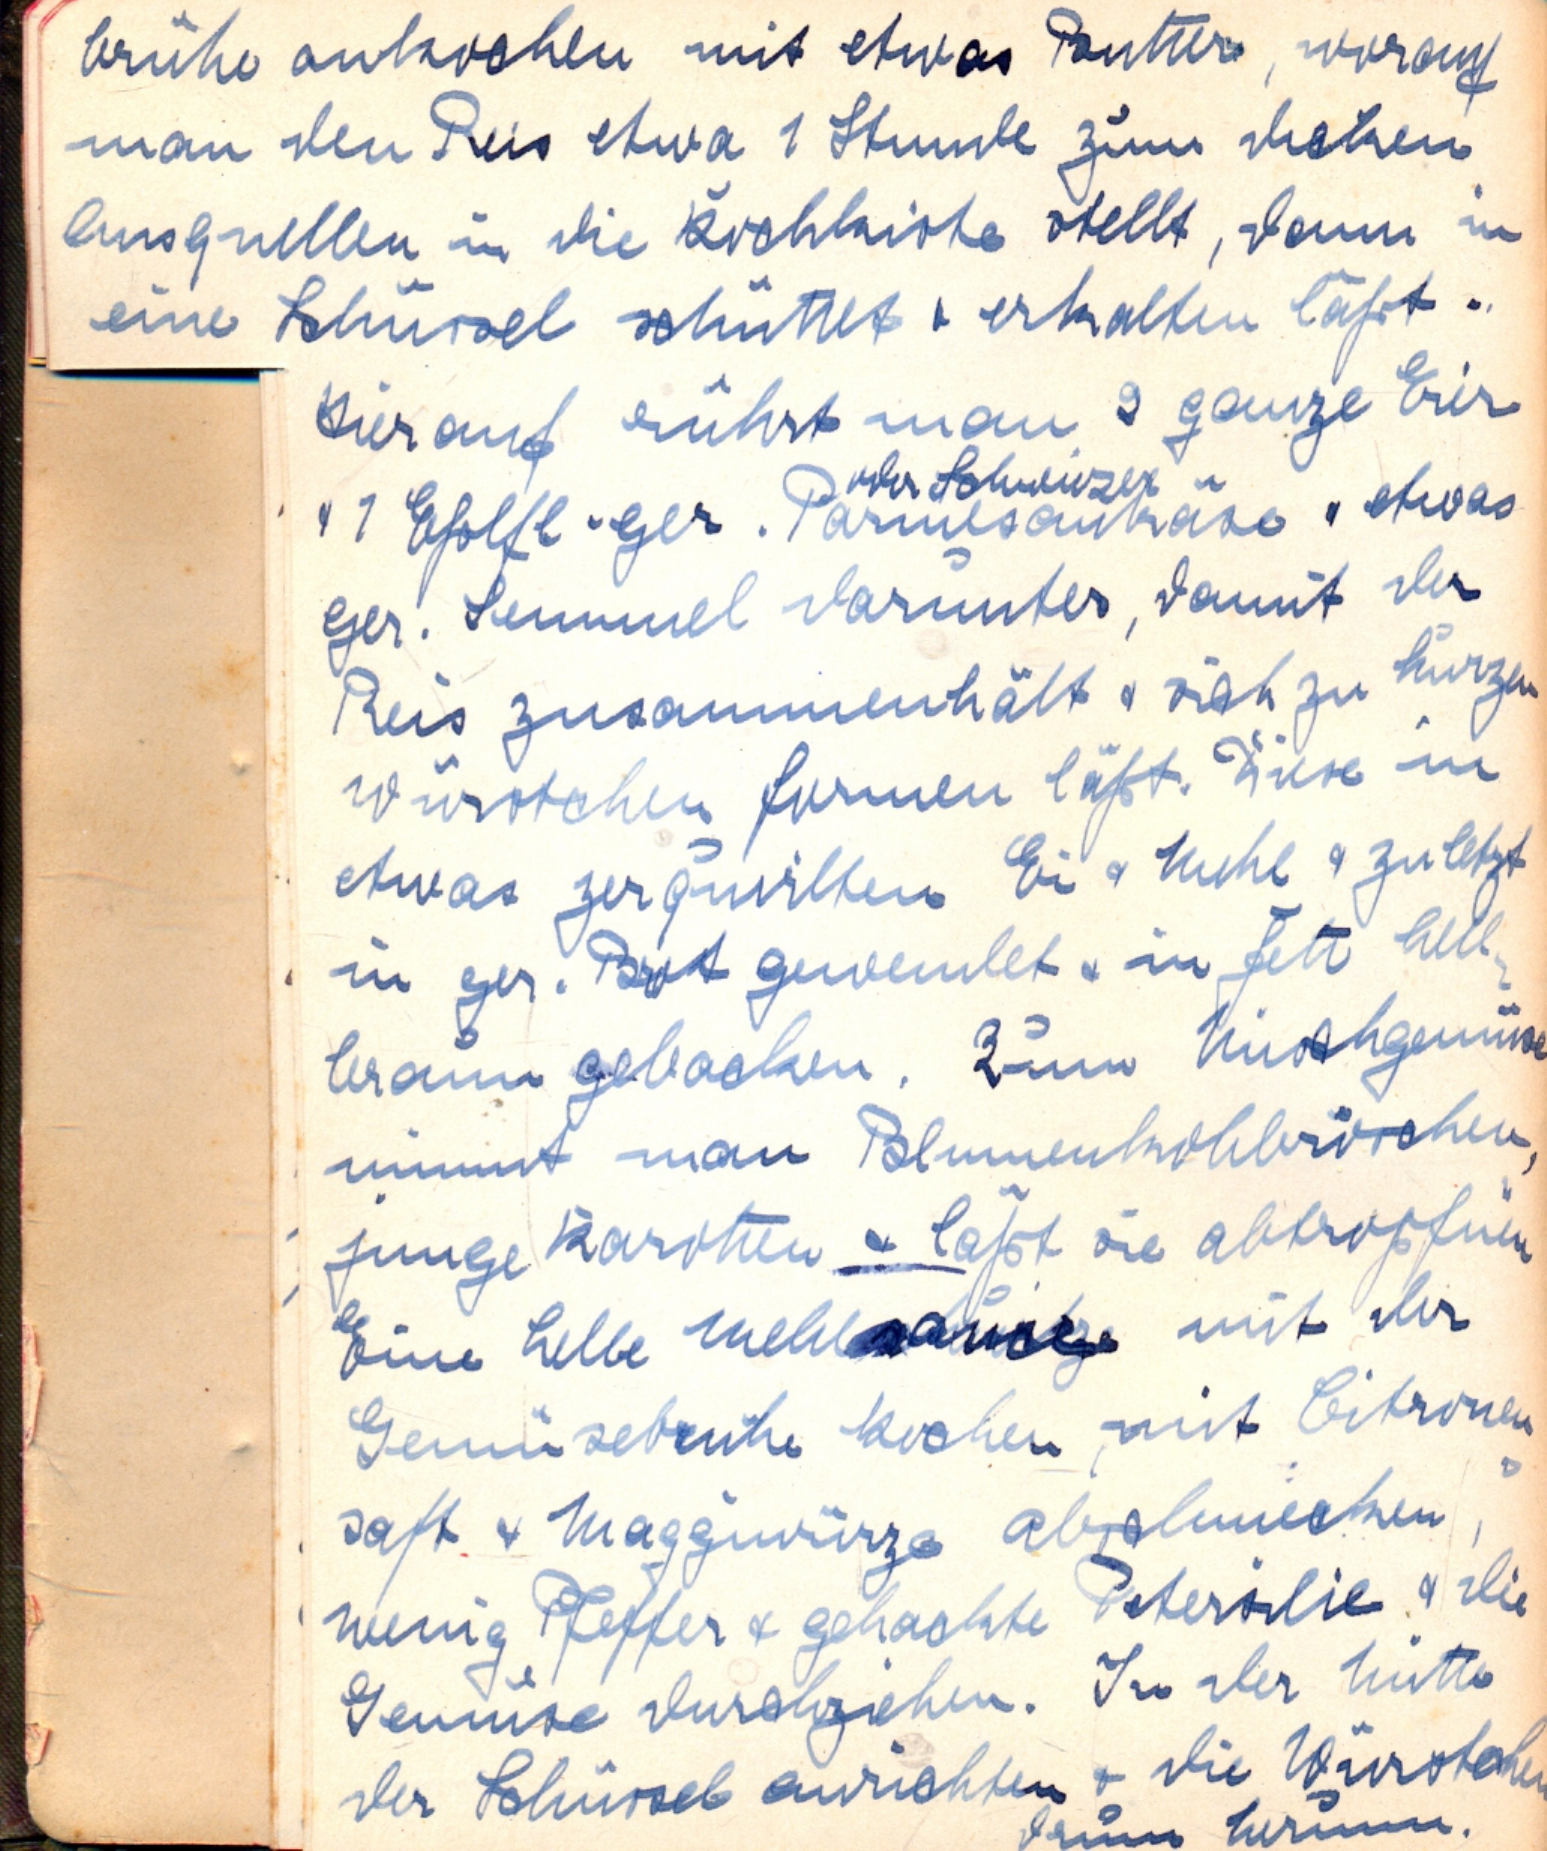 brühe ankochen mit etwas Butter, worauf
man den Reis etwa 1 Stunde zum dicken
Ausquellen in die Kochkiste stellt, dann in
eine Schüssel schüttet & erkalten läßt.
Hierauf rührt man 2 ganze Eier
oder Schweizer
& 1 Eßlffl. ger. Parmesankäse & etwas
ger. Semmel darunter, damit der
Reis zusammenhält & sich zu kurzen
Würstchen formen läßt. Diese in
etwas zerquirlten Ei & Mehl & zuletzt
in ger. Brot gewendet & in Fett hell-
braun gebacken. Zum Mischgemüse
nimmt man Blumenkohlröschen,
junge Karotten & läßt sie abtropfen
Eine helle Mehlsauce mit der
Gemüsebrühe kochen, mit Citronen
saft & Maggiwürze abschmecken,
wenig Pfeffer & gehackte Petersilie & die
Gemüse durchziehen. In der Mitte
der Schüssel anrichten & die Würstchen
drum herum.